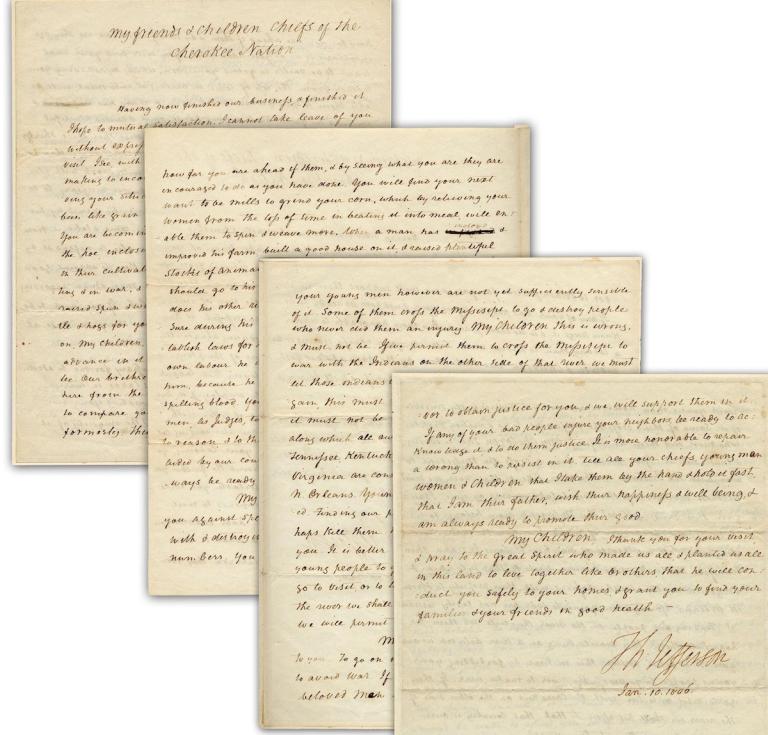 My friends & Children Chiefs of the
Cherokee Nation
Having now finished our business & finished it
I hope to mutual satisfaction. I cannot take leave of you
without expre
visit I see with
making to enco
ving your situa
been like grain
You are becomin
the hoe enclosi
in their cultivat
ting & in war, &
raised spin & w
tle & hogs for yo
on My children
advance in it
be. Our brethre
here from the
to compare yo
formerly. The
how far you are ahead of them, & by seeing what you are they are
encouraged to do as you have done. You will find your next
want to be mills to grind your corn, which by relieving your
women from the loss of time in beating it into meal, will en:
able them to spin & weave more. When a man has &
improved his farm built a good house on it, & raised plentiful
stocks of anima
should go to his
does his other re
sure during his
tablish laws for
own labour he
him, because he
spilling blood. You
men, as Judges, to
to reason, & to th
luded by our cou
ways be ready
My
you against spe
with & destroyi
numbers, you
your young men however are not yet sufficiently sensible
of it. Some of them cross the Missisipi to go & destroy people
who never did them an injury. My Children this is wrong,
& must not be. If we permit them to cross the Missisipi to
war with the Indians on the other side of that river, we must
let those Indians
gain, this must
it must not be
along which all ou
Tennissee Kentuck
Virginia are cons
N. Orleans. Youn
ed. Finding our p
haps kill them
you. It is better
young people to g
go to visit or to l
the river we shall
we will permit
M
to you. To go on
to avoid war. If
beloved Man
vor to obtain justice for you, & we will support them in it
If any of your bad people injure your neighbors be ready to ac:
knowledge it & to do them justice. It is more honorable to repair
a wrong than to persist in it. tell all your chiefs, young men
women & Children that I take them by the hand & hold it fast
that I am their father, wish their happiness & well being, &
am always ready to promote their good
My Children, I thank you for your visit
& pray to the Great Spirit who made us all & planted us all
in this land to live together like brothers, that he will con:
duct you safely to your homes & grant you to find your
families & your friends in good health –
Th Jefferson
Jan. 10. 1806